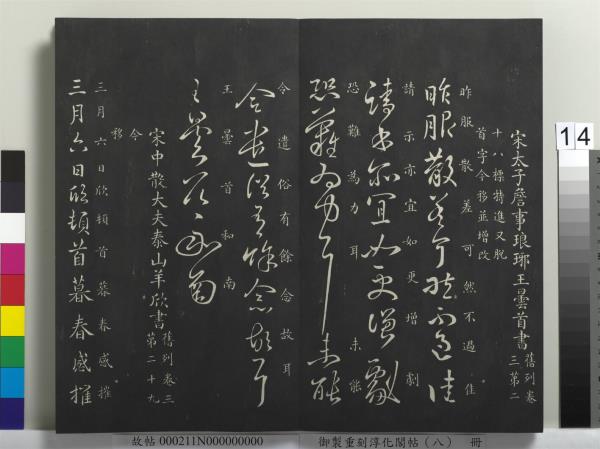 宋太子詹事琅琊王曇首書
舊列卷
三第二
十八標特進又脫
首字今移並增改
昨服散差可然不過佳
昨服散差可然不過佳
請示亦宜如更增劇
請示亦宜如更增劇
恐難為力耳未能
恐難為力耳未能
令遣俗有餘念故耳
令遣俗有餘念故耳
王曇首和南
王曇首和南
宋中散大夫泰山羊欣書
舊列卷三
第二十九
今
移
三月六日欣頓首暮春感摧
三月六日欣頓首暮春感摧
14
故帖 000211N000000000
御製重刻淳化閣帖(八) 冊